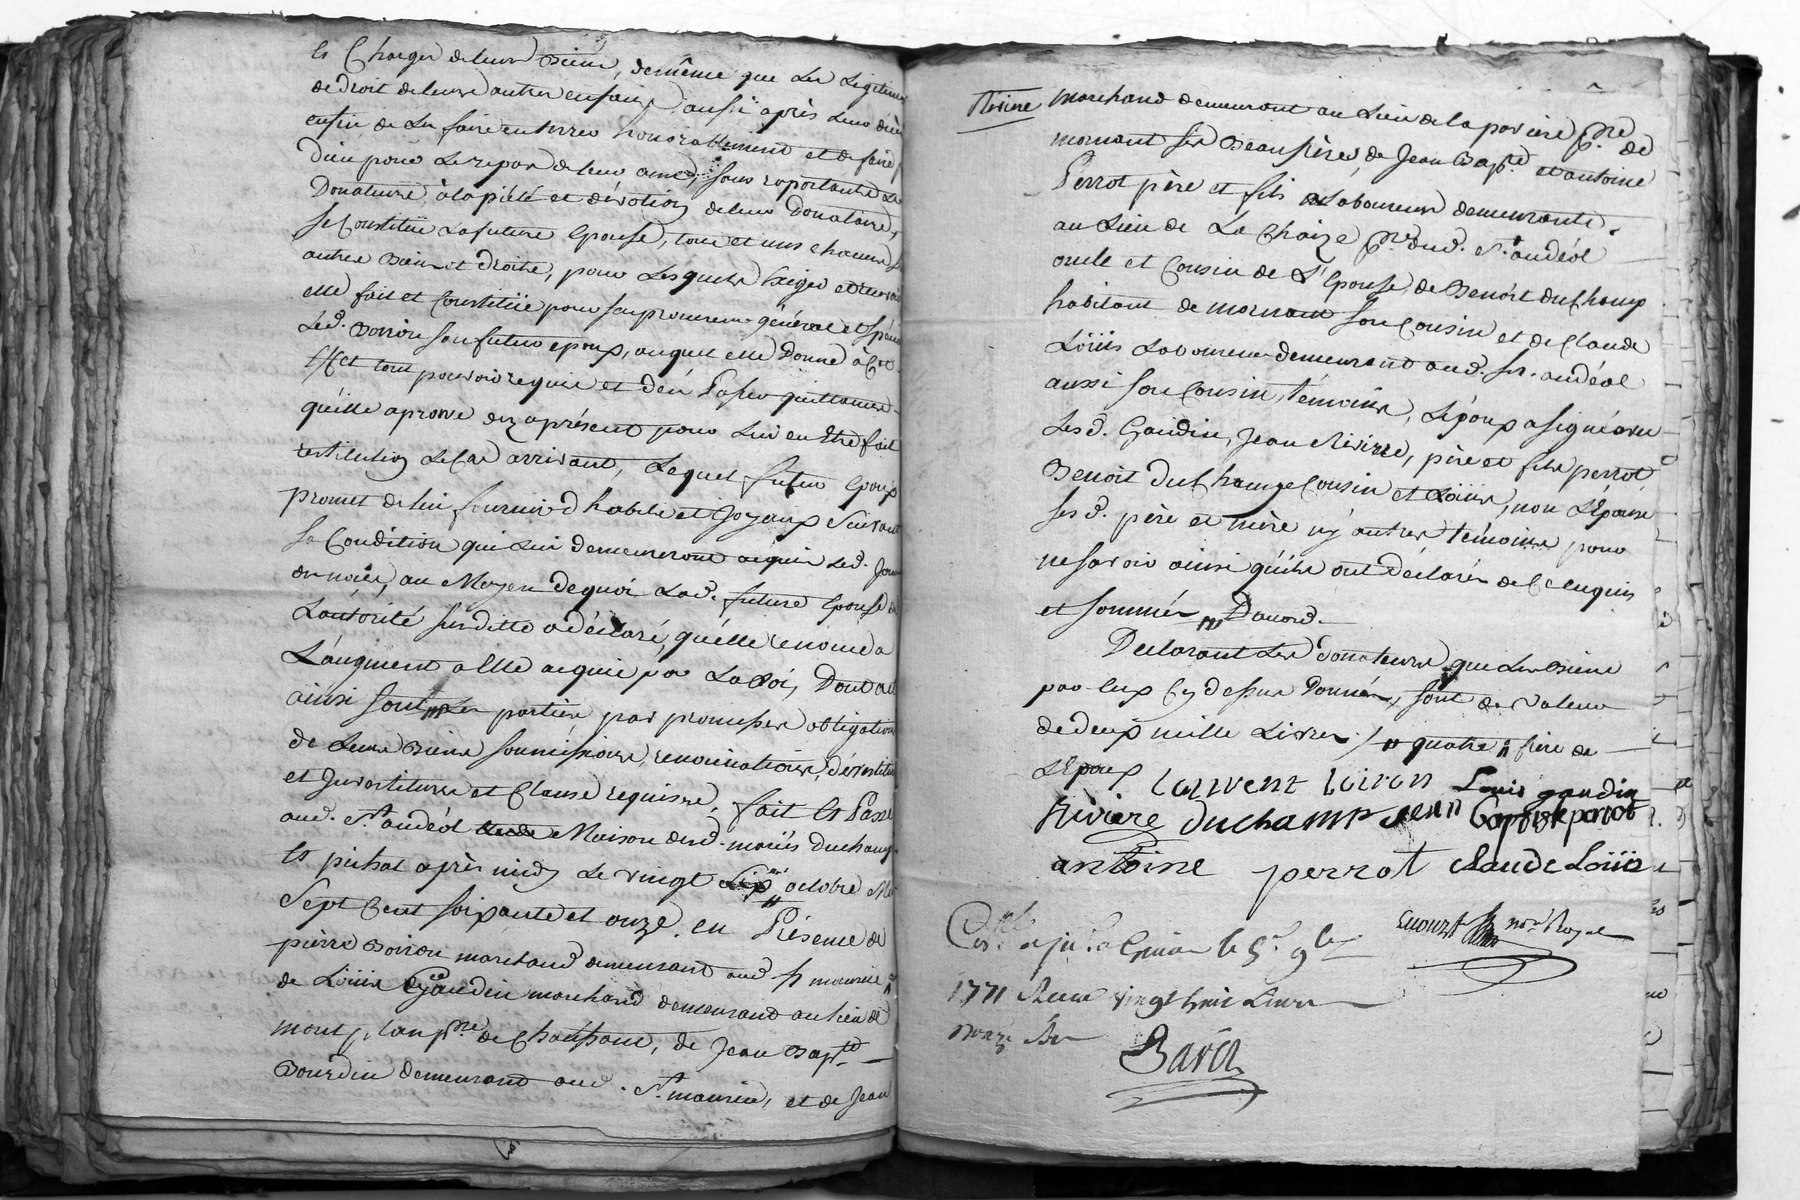 les Charges de leurs Biens, de même que Les Légitimes
de droit de leurs autres enfans, aussi après Leurs décès
enfin de Les faire enterrer honorablement et de faire
dieu pour Le repos de leurs ames, sous raportants Les
Donateurs, à la piété et dévotion de leurs Donataire,
se Constitüe La future Epouse, tous et uns chacuns
autres Biens et droits, pour Lesquels Exiger et recevoir
elle fait et Constitüe pour son procureur général et spécial
Led. Boiron son futur epoux, auquel elle Donne à Cet
Effet tout pouvoir requis et d'en Passer quittances
quelle aprouve dez aprésent pour Lui en Etre fait
restitution Le Cas arrivant, Lequel futur Epoux
promet de lui fournir d'habits et Joyaux Suivant
sa Condition qui Lui demeureront acquis Led. Jour
de nôces, au Moyen de quoi Lad. future Epouse de
L'autorité susditte a déclaré, qu'elle renonce a
L'augment a Elle acquis par La Loi, Dont acte
ainsi sont Les parties par promesses obligations
de Leurs Biens soumissions, renonciations, dévestitures
et Investitures et Clauses requises, fait Et Passé
aud. St. andéol Maison desd. mariés Duchamp
Et pichat après midy Le vingt octobre Mil
Sept Cent soixante et onze. en Présence de
pierre Boiron marchand demeurant aud. St maurice
de Loüis Gaudin marchand demeurant au Lieu de
mont, Lan psse de Chaussane, de Jean Bapte
Bourdin demeurant aud. St. maurice, et de Jean
Riviere marchand demeurant au Lieu de la pavière psse de
mornant ses Beaufrères, de Jean Bapte. et antoine
Perrot père et fils Laboureurs demeurants
au Lieu de La Chaize psse dud. St. andéol
oncle et Cousin de L'Epouse, de Benoit duchamp
habitant de mornant son Cousin et de Claude
Loüis Laboureur demeurant aud. St. andéol
aussi son Cousin, témoins, L'époux a signé avec
Lesd. Gaudin, Jean Riviere, père et fils perrot
Benoit Duchamp Cousin et Loüis, non L'Epouse
sesd. père et mère ny autres témoins pour
ne savoir ainsi qu'ils ont déclarés de Ce enquis
et sommés D'avord.
Declarant Les Donateurs que Les Biens
par Eux Cy dessus Donnés, sont de Valeur
de deux mille Livres / quatre frère de
L'Epoux Laurent Boiron Louis gaudin
Riviere Duchamp Jean Baptiste perrot
antoine perrot Claude Loüis
nre. Royal
le 5. 9bre
1771 Reçu vingt huit Livres